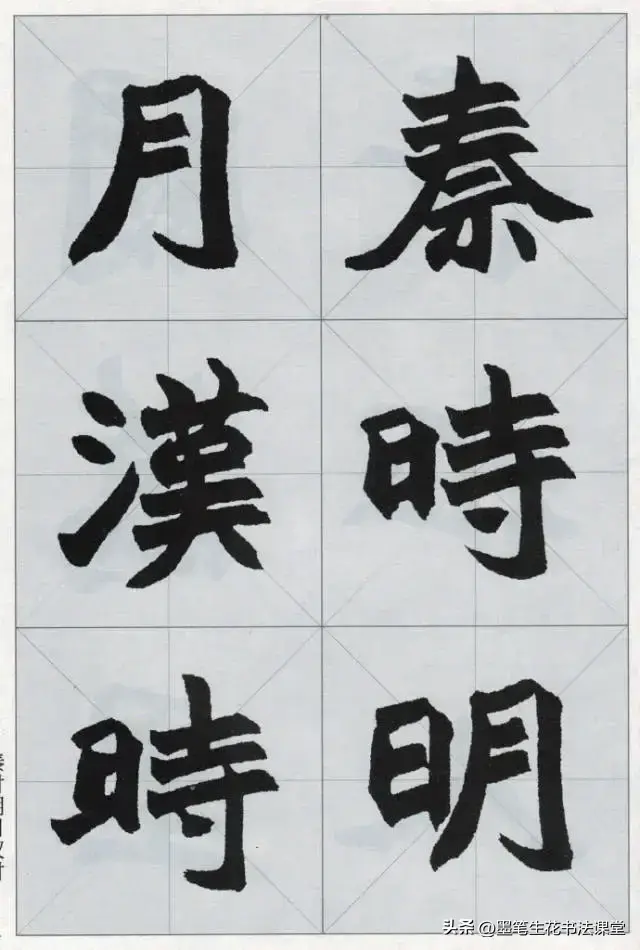 秦時明
月漢時
头条 @墨笔生花书法课堂